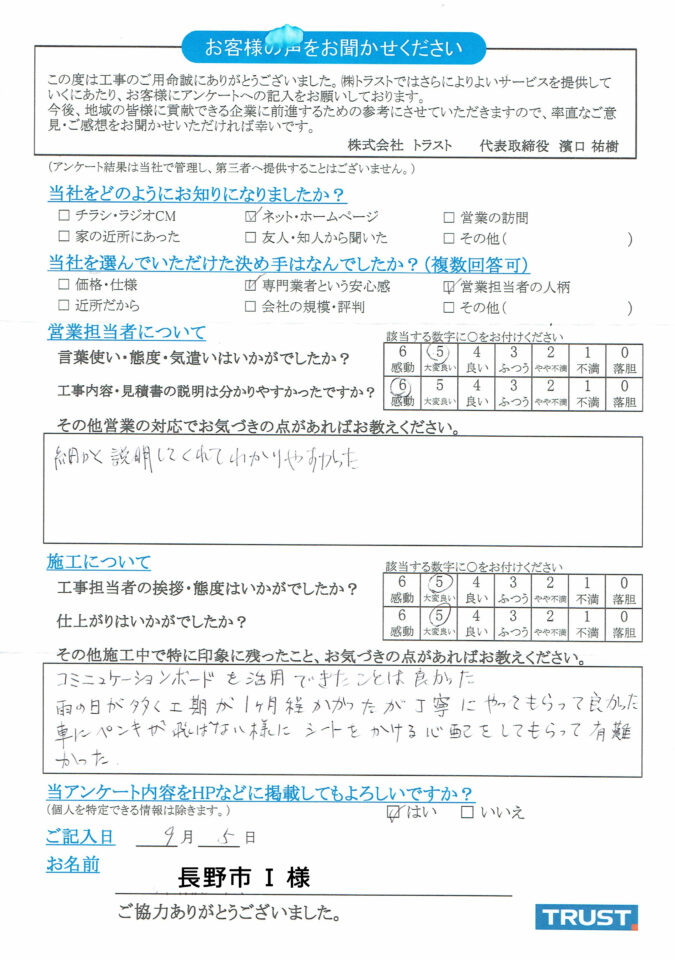 お客様の声をお聞かせください
この度は工事のご用命誠にありがとうございました。㈱トラストではさらによりよいサービスを提供して
いくにあたり、お客様にアンケートへの記入をお願いしております。
今後、地域の皆様に貢献できる企業に前進するための参考にさせていただきますので、率直なご意
見・ご感想をお聞かせいただければ幸いです。
株式会社 トラスト 代表取締役 濱口 祐樹
(アンケート結果は当社で管理し、第三者へ提供することはございません。)
当社をどのようにお知りになりましたか?
□ チラシ・ラジオCM ☑ ネット・ホームページ □ 営業の訪問
□ 家の近所にあった □ 友人・知人から聞いた □ その他( )
当社を選んでいただけた決め手はなんでしたか?(複数回答可)
□ 価格・仕様 ☑ 専門業者という安心感 ☑ 営業担当者の人柄
□ 近所だから □ 会社の規模・評判 □ その他( )
営業担当者について 該当する数字に○をお付けください
言葉使い・態度・気遣いはいかがでしたか? 6 5 4 3 2 1 0
感動 大変良い 良い ふつう やや不満 不満 落胆
工事内容・見積書の説明は分かりやすかったですか? 6 5 4 3 2 1 0
感動 大変良い 良い ふつう やや不満 不満 落胆
その他営業の対応でお気づきの点があればお教えください。
細かく説明してくれてわかりやすかった
施工について 該当する数字に○をお付けください
工事担当者の挨拶・態度はいかがでしたか? 6 5 4 3 2 1 0
感動 大変良い 良い ふつう やや不満 不満 落胆
仕上がりはいかがでしたか? 6 5 4 3 2 1 0
感動 大変良い 良い ふつう やや不満 不満 落胆
その他施工中で特に印象に残ったこと、お気づきの点があればお教えください。
コミニュケーションボードを活用できたことは良かった
雨の日が多く工期が1ヶ月程かかったが丁寧にやってもらって良かった
車にペンキが飛ばない様にシートをかける心配をしてもらって有難
かった.
当アンケート内容をHPなどに掲載してもよろしいですか?
(個人を特定できる情報は除きます。) ☑ はい □ いいえ
ご記入日 9 月 5 日
お名前 長野市 I 様
ご協力ありがとうございました。
TRUST.